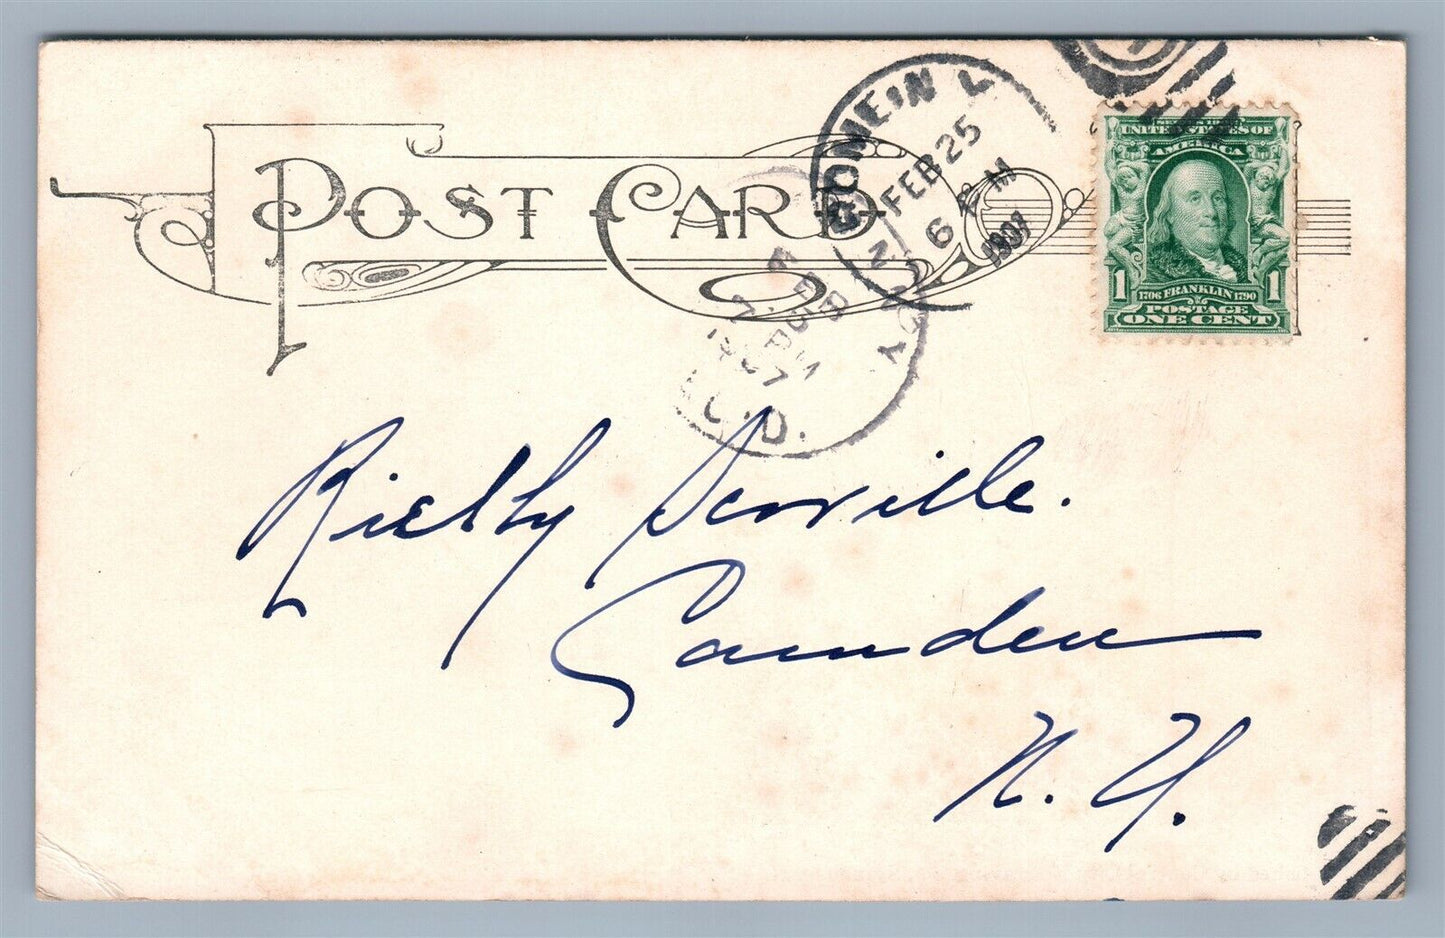 POST CARD
ROME, N.Y.
FEB 25
6 PM
1907
UNITED STATES OF
AMERICA
1 1
1706 FRANKLIN 1790
POSTAGE
ONE CENT
N.Y.
FEB
7 PM
1907
Scoville.
Camden
N. Y.